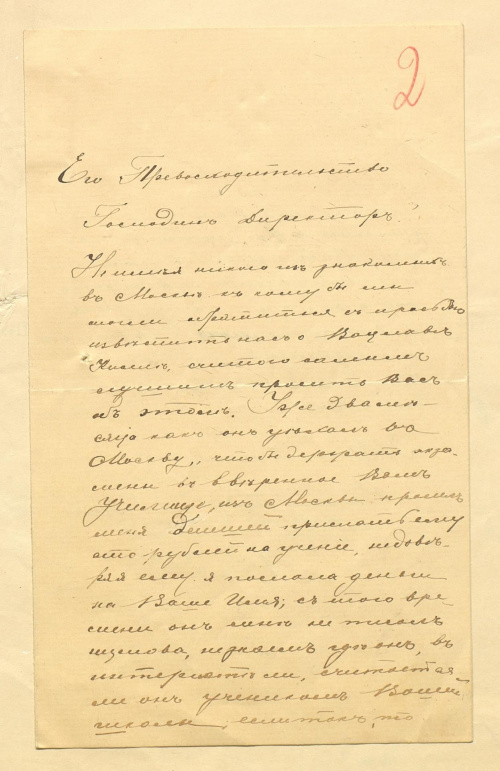 2
Его Превосходительство
Господинъ Директоръ!
Не имѣя никого изъ знакомыхъ
въ Москвѣ къ кому бы мы
могли обратиться съ просьбою
извѣстить насъ о Вацлавѣ
считаю самымъ
лучшимъ просить Васъ
объ этомъ. Уже два мѣ-
сяца какъ онъ уѣхалъ въ
Москву, что бы держать экза-
мены въ ввѣренное Вамъ
Училище, изъ Москвы просилъ
меня Депешей прислать ему
сто рублей на ученіе, недовѣ-
ряя ему я послала деньги
на Ваше Имя; съ того вре-
мени онъ мнѣ не писалъ
ни слова, не знаемъ гдѣ онъ, въ
интернатѣ ли, считается
ли онъ ученикомъ Вашей
школы, если такъ, то